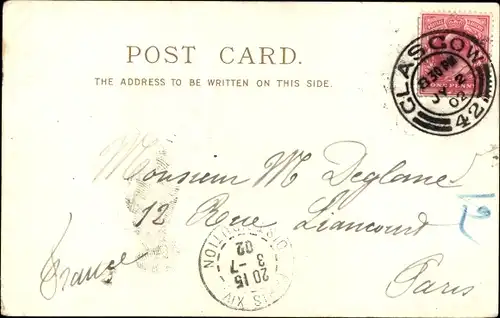 POST CARD.
THE ADDRESS TO BE WRITTEN ON THIS SIDE.
GLASGOW
8 30 PM
JY 2
02
42
ONE PENNY
Monsieur M Deglane
12 Rue Liancourt
Paris
France
DISTRIBUTION
PARIS XIV
20 15
3 - 7
02